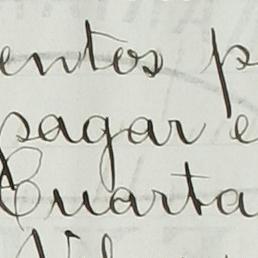 entos p
pagar e
Cuarta